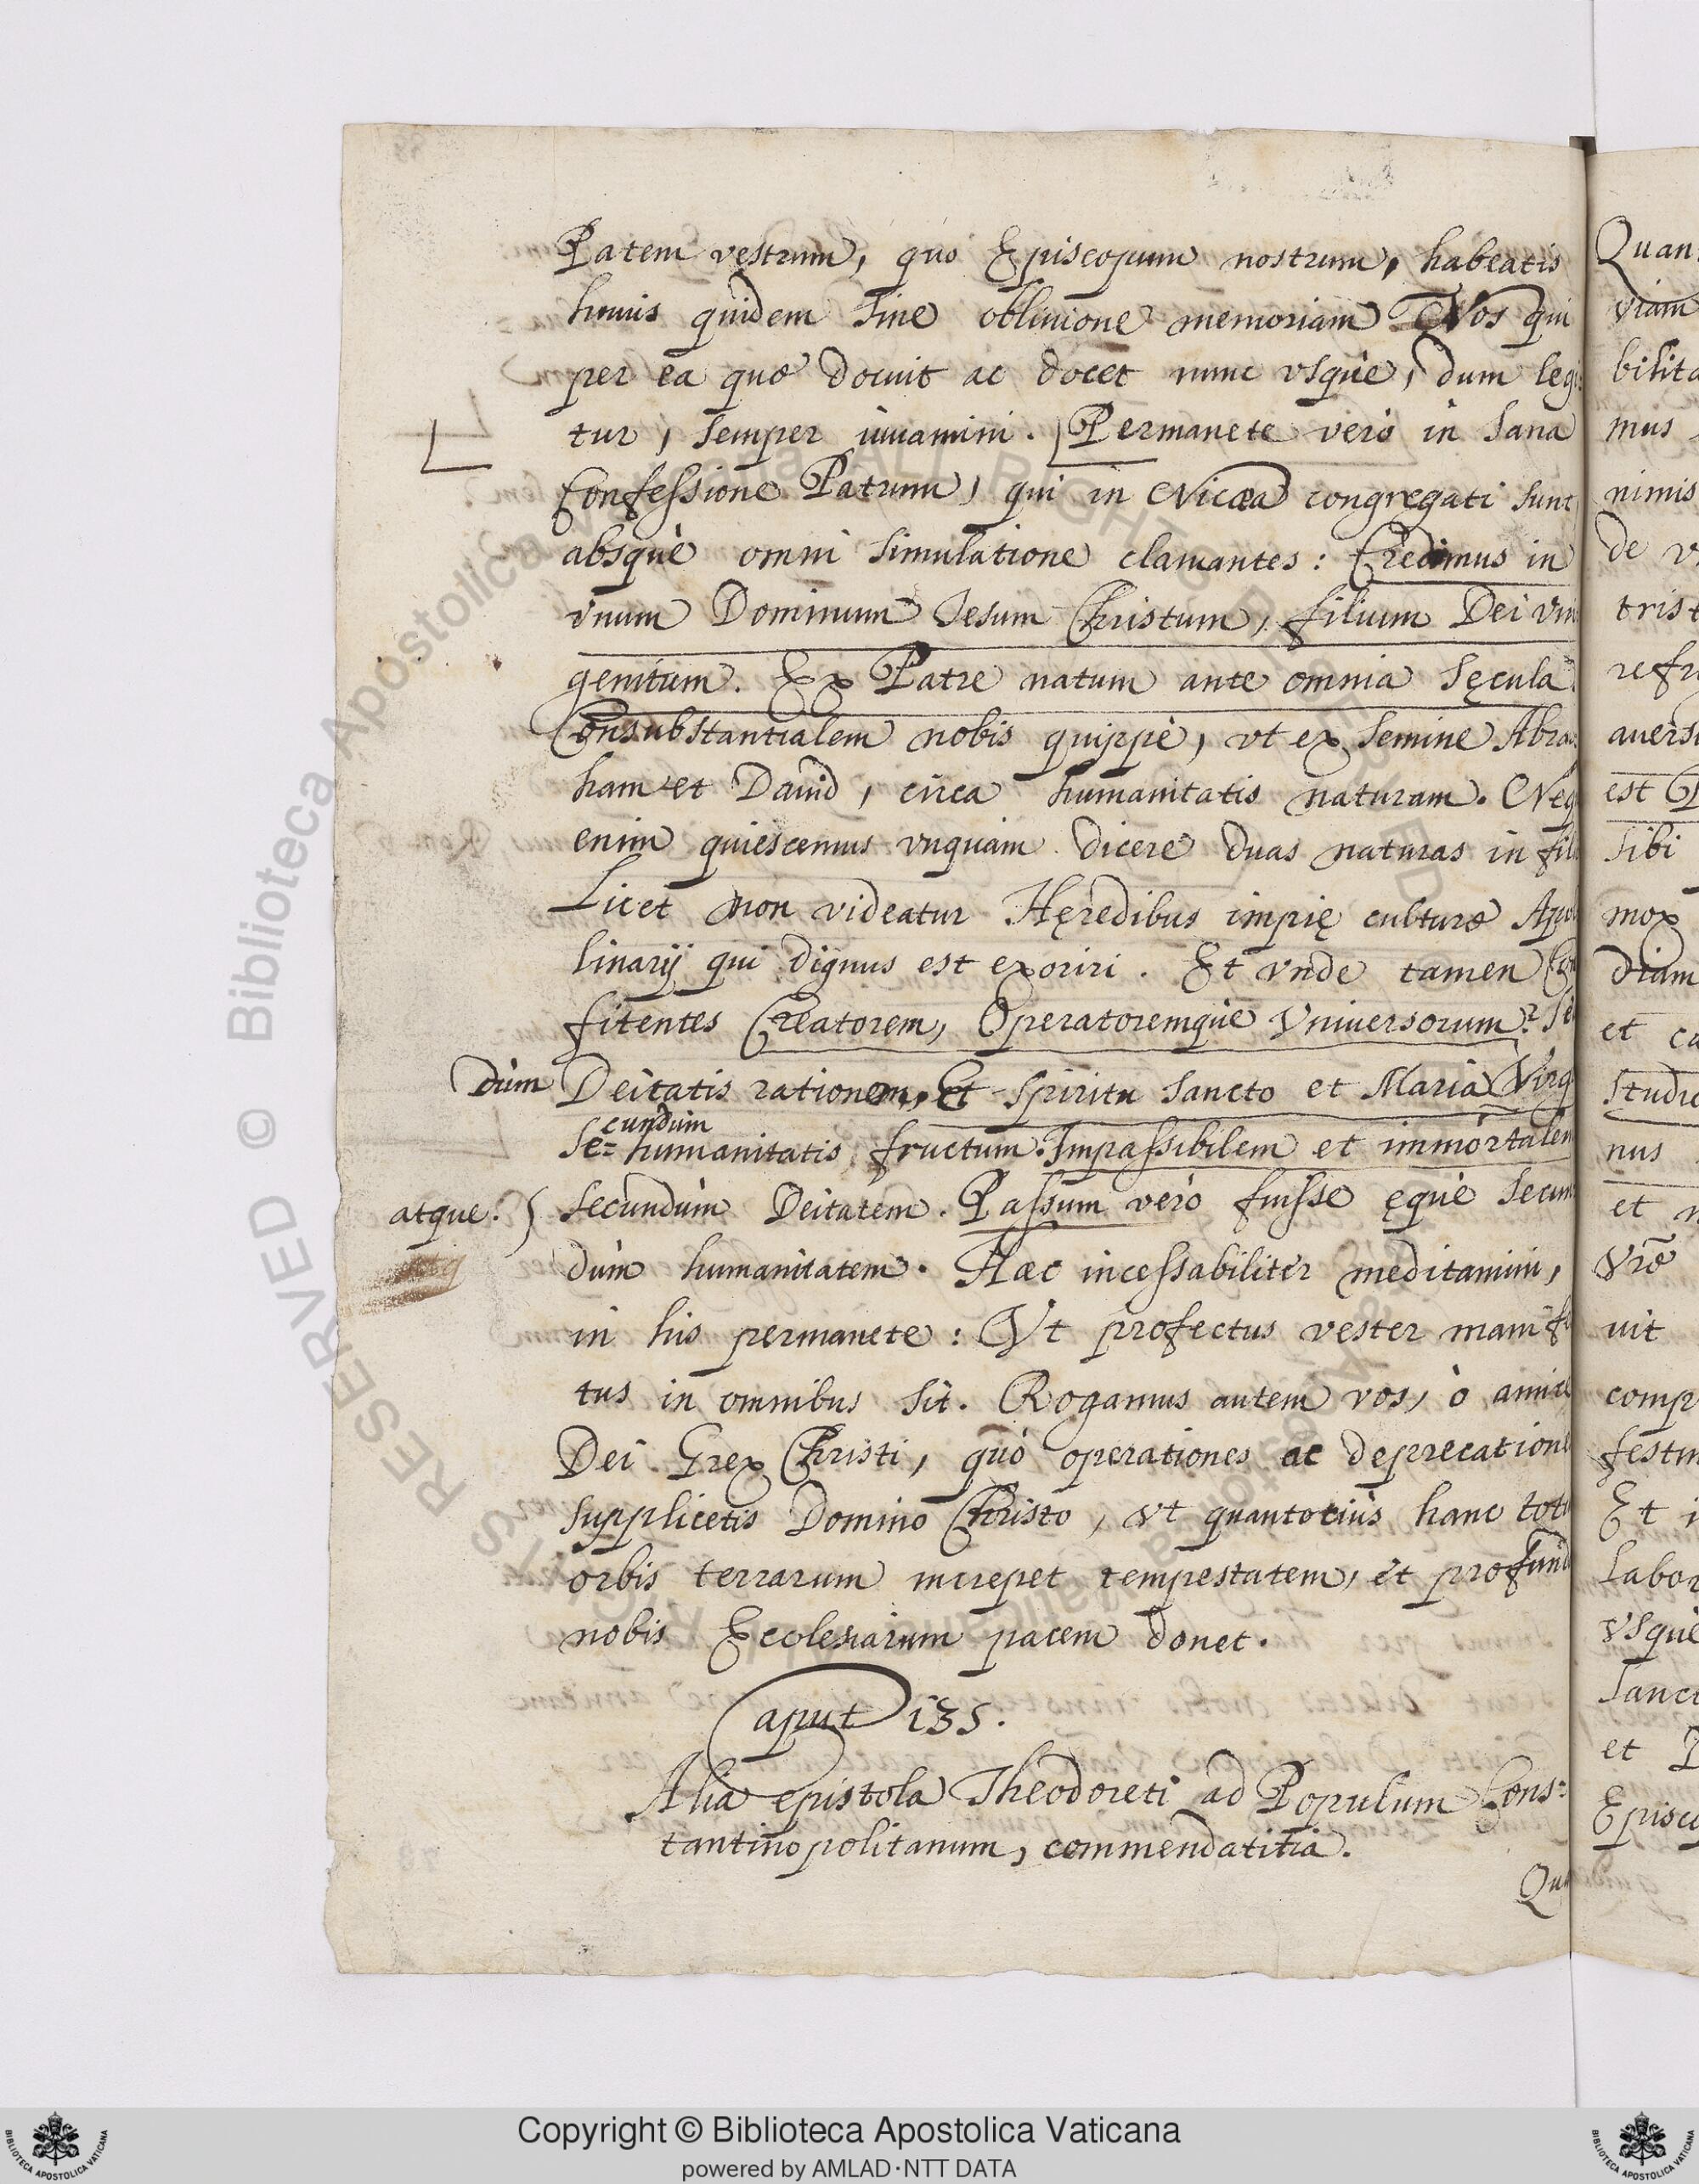 Patem vestrum, quo Episcopum nostrum, habeatis
huius quidem sine obliuione memoriam Nos qui
per ea quæ docuit ac docet nunc vsquè, dum legi
tur, semper iuuamini. Permanete verò in sana
Confessione Patrum, qui in Nicæa congregati sunt
absquè omni simulatione clamantes: Credimus in
vnum Dominum Iesum Christum, filium Dei vni
genitum. Ex Patre natum ante omnia sęcula
Consubstantialem nobis quippè, vt ex semine Abra
ham et Dauid, circa humanitatis naturam. Neq
enim quiescemus vnquam dicere duas naturas in fili
Licet non videatur Hęredibus impię culturæ Apol
linarij qui dignus est exoriri. Et vnde tamen Con
fitentes Creatorem, Operatoremquè Vniuersorum? Se
dùm Deitatis rationem, Et Spiritu sancto et Maria Virg
cundùm
Se= humanitatis fructum. Impassibilem et immortalem
atque. secundùm Deitatem. Passum verò fuisse ęquè secun
dùm humanitatem. Hæc incessabiliter meditamini,
in his permanete: Vt profectus vester manifes
tus in omnibus sit. Rogamus autem vos, ò amic
Dei Grex Christi, quò operationes ac deprecatione
supplicetis Domino Christo, vt quantotiùs hanc toti
orbis terrarum increpet tempestatem, et profund
nobis Ecclesiarum pacem donet.
Caput 135.
Alia epistola Theodoreti ad Populum Cons=
tantinopolitanum, commendatitia.
Qua
Quan
viam
bilita
mus
nimis
de v
trist
refri
auersi
est
sibi
mox
diam
et ca
studi
nus
et n
Vrẽ
uit
comp
festin
Et i
labor
vsquè
sanct
et P
Episco
© Biblioteca Apostolica Vaticana ALL RIGHTS RESERVED
Copyright © Biblioteca Apostolica Vaticana
powered by AMLAD·NTT DATA
BIBLIOTECA APOSTOLICA VATICANA
BIBLIOTECA APOSTOLICA VATICANA